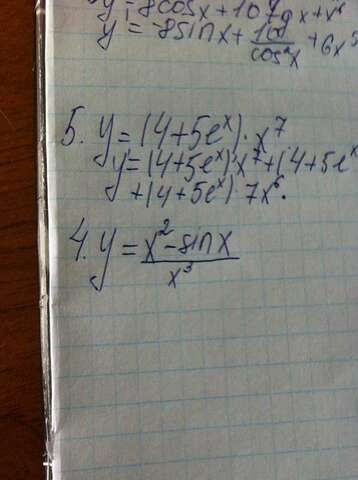 y=8cosx+10tgx+x⁶
y=-8sinx+10/cos²x+6x⁵
5. y=(4+5eˣ)·x⁷
y=(4+5eˣ)'x⁷+(4+5eˣ
+(4+5eˣ)·7x⁶.
4. y=x²-sinx/x³